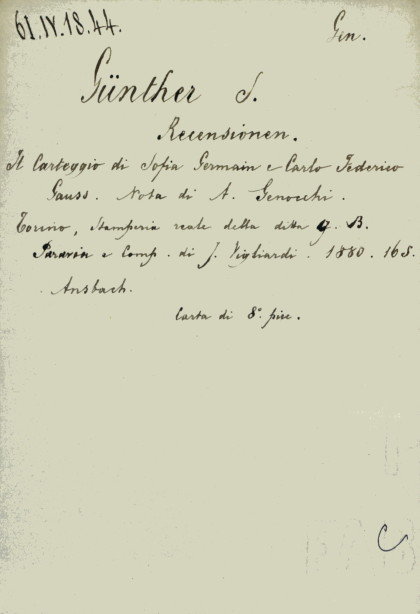 61.IV.18.44.
Gen.
Günther S.
Recensionen.
Il Carteggio di Sofia Germain e Carlo Federico
Gauss. Nota di A. Genocchi.
Torino, Stamperia reale della ditta G. B.
Paravia e Comp. di J. Vigliardi. 1880. 16 S.
Ansbach.
Carta di 8° picc.
C